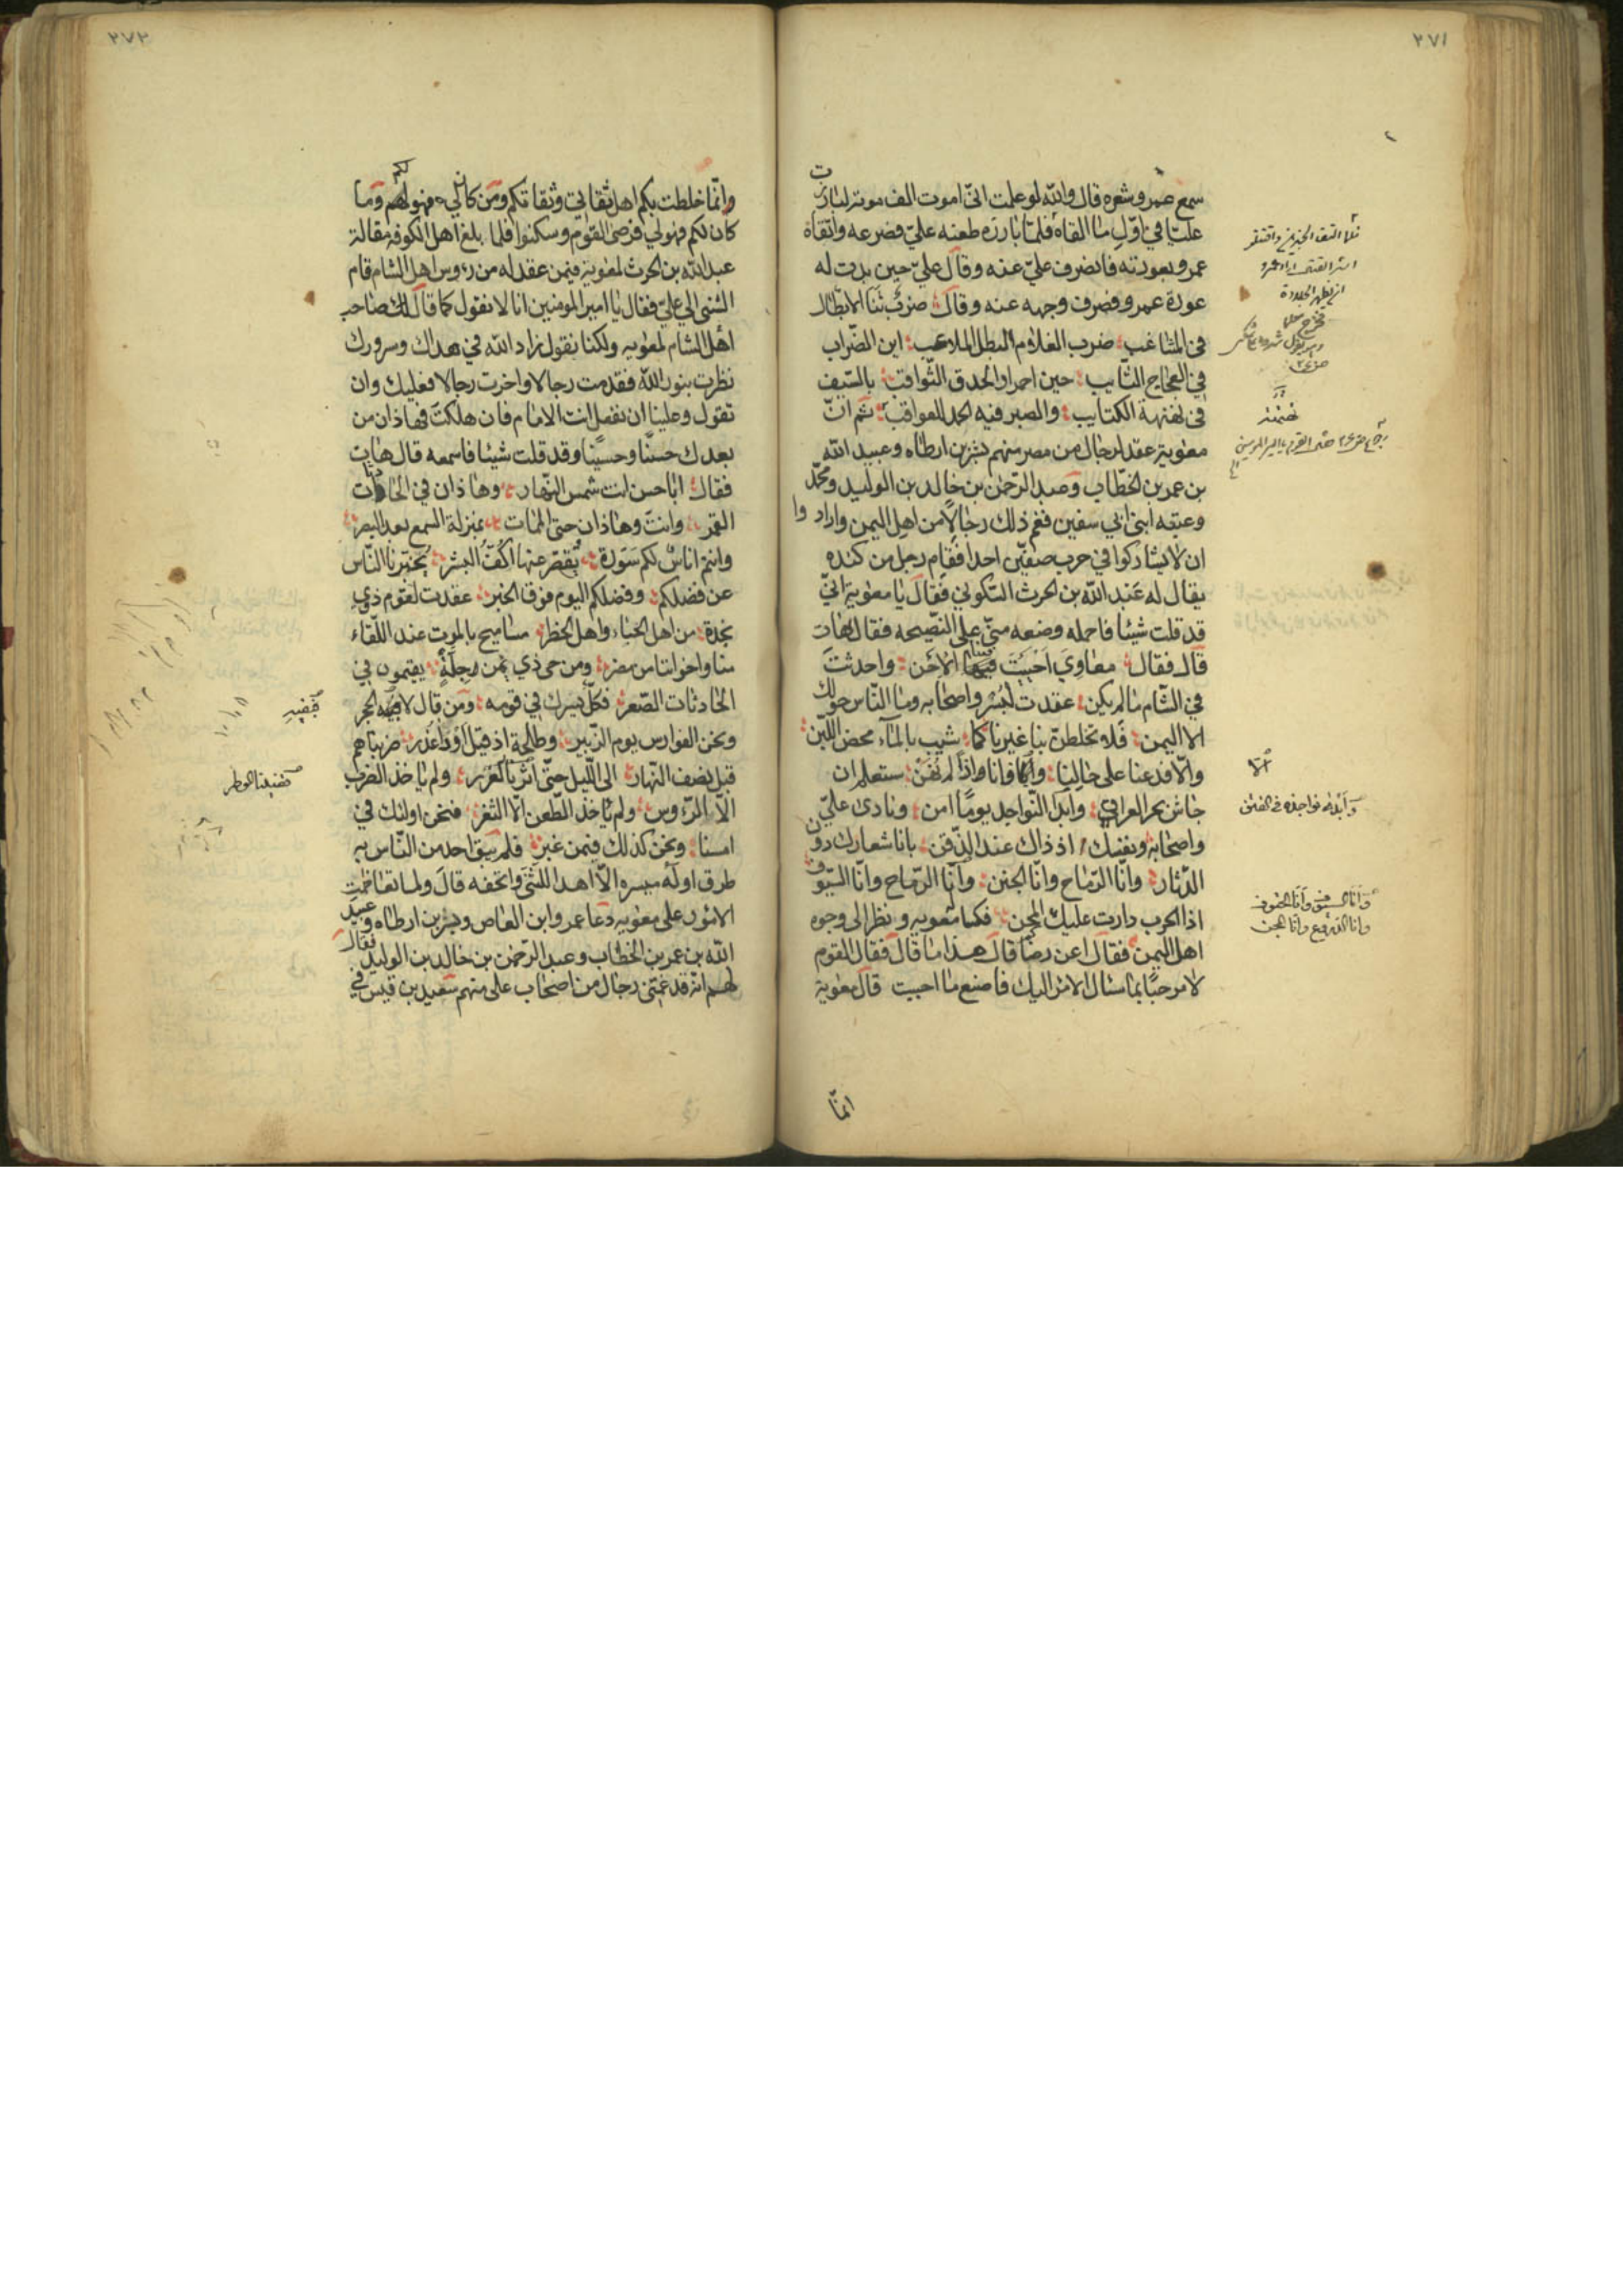 ٢٧١
سمع عمرو شعره قال والله لو علمت انّى اموت الف موتة لبارزت
عليّا في اوّل ما القاه فلمّا بارزه طعنه عليّ فصرعه واتّقاه
عمرو بعورته فانصرف عليّ عنه وقال عليّ حين بدت له
عورة عمرو فصرف وجهه عنه وقال ضرب ثبا الابطال
في المشاغب ضرب الغلام البطل الملاعب اين الضّراب
في العجاج الثّايب حين احمرار الحدق الثّواقب بالسّيف
في تهتهة الكتايب والصبر فيه الحمد للعواقب ثم انّ
معوية عقد لرجال من مصر منهم بشر بن ارطاه وعبيد الله
بن عمر بن الخطّاب وعبد الرّحمن بن خالد بن الوليد ومحمّد
وعتبه ابنى ابي سفين فغم ذلك رجالًا من اهل اليمن وارادوا
ان لا يشاركوا في حرب صفّين احدا فقام رجل من كنده
يقال له عبد الله بن الحرث السّكوني فقال يا معوية انّي
قد قلت شيئا فاحمله وضعه منّي على النّصيحه فقال هات
قال فقال معاوي احييت فينا الاحن واحدثت
في الشّام ما لم يكن عقدت لبُسْر واصحابه وما النّاس حولك
الا اليمن فلا تخلطنّ بنا غيرنا كما شيب بالمآء محض اللّبن
والّا فدعنا على حالنا وانّا اذا لم نُهَنْ ستعلم ان
جاش بحر العراق وابدا النّواجد يومًا امن ونادى عليّ
واصحابه ونفسك اذ ذاك عند الذّقن بانا شعارك دون
الدّثار وانّا الرّماح وانّا الجنن وانّا الرّماح وانّا السّيوف
اذا الحرب دارت عليك المجن فكبا معويه ونظر الى وجوه
اهل اليمن فقال اعن رضًا قال هذا ما قال فقال القوم
لا مرحبًا بما قال الامر اليك فاصنع ما احببت قال معوية
انمّا
وانا السيوف وانا الحتوف
وانا الدروع وانا المجن
٢٧٢
وانّما خلطت بكم اهل ثقاتي وثقاتكم ومن كان لي فهو لكم وما
كان لكم فهو لي فرضى القوم وسكنوا فلما بلغ اهل الكوفة مقالة
عبد الله بن الحرث لمعوية فيمن عقد له من رؤوس اهل الشام قام
الشنى الى عليّ فقال يا امير المومنين انا لا نقول كما قال لك صاحب
اهل الشام لمعويه ولكنا نقول زاد الله في هداك وسرورك
نظرت بنور الله فقدمت رجالا واخرت رجالا فعليك وان
تقول وعلينا ان نفعل انت الامام فان هلكت فهاذان من
بعدك حسنًا وحسينًا وقد قلت شيئا فاسمعه قال هات
فقال ابا حسن انت شمس النّهار وهاذان في الحادثات
القمر وانت وهاذان حتى الممات بمنزلة السمع بعد البصر
وانتم اناسٌ لكم سَورة تُقصّر عنها اَكُفّ البشر يُخبّرنا النّاس
عن فضلكم وفضلكم اليوم فوق الخبر عقدت لقوم ذوي
نجدة من اهل الحياء واهل الخطر مساميح بالموت عند اللّقاء
منا واخواننا من مضر ومن حى ذي يمن جِلّةٌ يقيمون في
الحادثات الصّعر فكلّ يسرك في قومه ومن قال لا فبفيه الحجر
ونحن الفوارس يوم الزّبير وطلحة اذ قيل اودى غُدر ضربناهم
قبل نصف النّهار الى اللّيل حتّى
الّا الرّءوس ولم ياخذ الطّعن الّا الثغر فنحن اولئك في
امسنا ونحن كذلك فيمن غبر فلم يبق احد من النّاس به
طرق اوله ميسره الّا اهدا للشنى واتحفه قال ولما تعاظمت
الامور على معويه دعا عمرو ابن العاص وبشر بن ارطاه وعبيد
الله بن عمر بن الخطّاب وعبد الرّحمن بن خالد بن الوليد فقال
لهم انّه قد غمّنى رجال من اصحاب على منهم سعيد بن قيس في
فبفيه